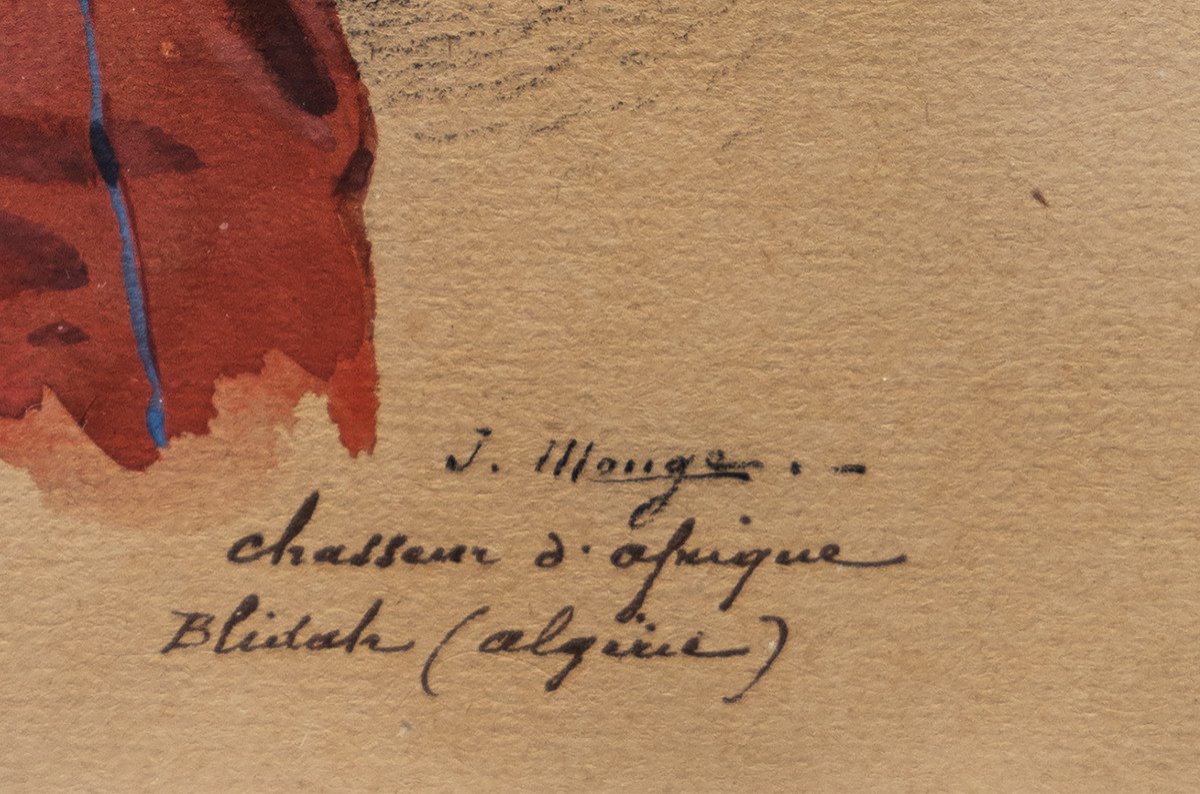 J. Monge . -
chasseur d'afrique
Blidah (algérie)